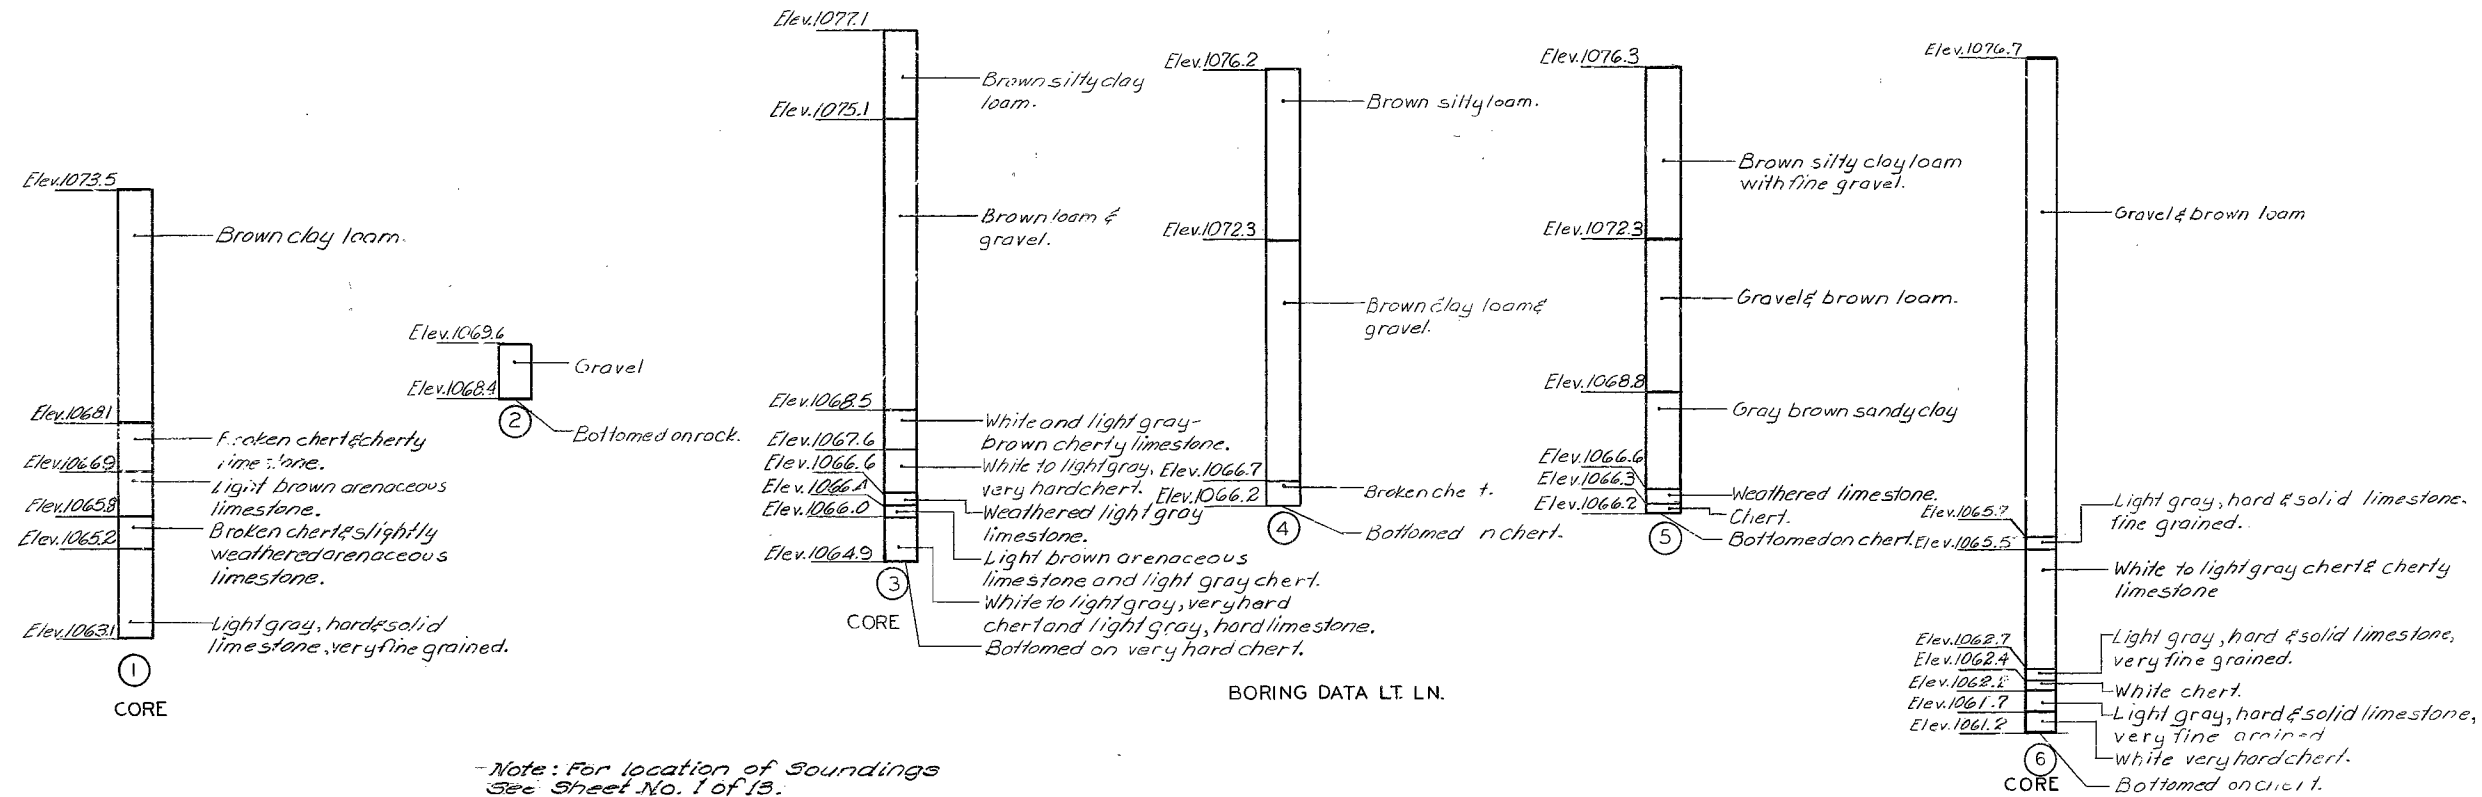 Elev. 1073.5
Brown clay loam.
Elev. 1068.1
chert & cherty
Elev. 1066.9
Light brown arenaceous
limestone.
Elev. 1065.8
Broken chert & slightly
weathered arenaceous
limestone.
Elev. 1065.2
Light gray, hard & solid
limestone, very fine grained.
Elev. 1063.1
1
CORE
Elev. 1069.6
Gravel
Elev. 1068.4
2
Bottomed on rock.
Elev. 1077.1
Brown silty clay
loam.
Elev. 1075.1
Brown loam &
gravel.
Elev. 1068.5
White and light gray-
brown cherty limestone.
Elev. 1067.6
White to light gray,
very hard chert.
Elev. 1066.6
Weathered light gray
limestone.
Elev. 1066.4
Light brown arenaceous
limestone and light gray chert.
Elev. 1066.0
White to light gray, very hard
chert and light gray, hard limestone.
Elev. 1064.9
Bottomed on very hard chert.
3
CORE
Elev. 1076.2
Brown silty loam.
Elev. 1072.3
Brown clay loam &
gravel.
Elev. 1066.7
Broken
Elev. 1066.2
Bottomed chert.
4
Elev. 1076.3
Brown silty clay loam
with fine gravel.
Elev. 1072.3
Gravel & brown loam.
Elev. 1068.8
Gray brown sandy clay
Elev. 1066.6
Weathered limestone.
Elev. 1066.3
Chert.
Elev. 1066.2
Bottomed on chert.
5
Elev. 1076.7
Gravel & brown loam
Elev. 1065.7
Light gray, hard & solid limestone.
fine grained.
Elev. 1065.5
White to light gray chert & cherty
limestone
Elev. 1062.7
Light gray, hard & solid limestone,
very fine grained.
Elev. 1062.4
White chert.
Light gray, hard & solid limestone,
very fine
Elev. 1061.7
White very hard chert.
Elev. 1061.2
Bottomed on
6
CORE
BORING DATA LT. LN.
Note: For location of Soundings
See Sheet No. 1 of 13.